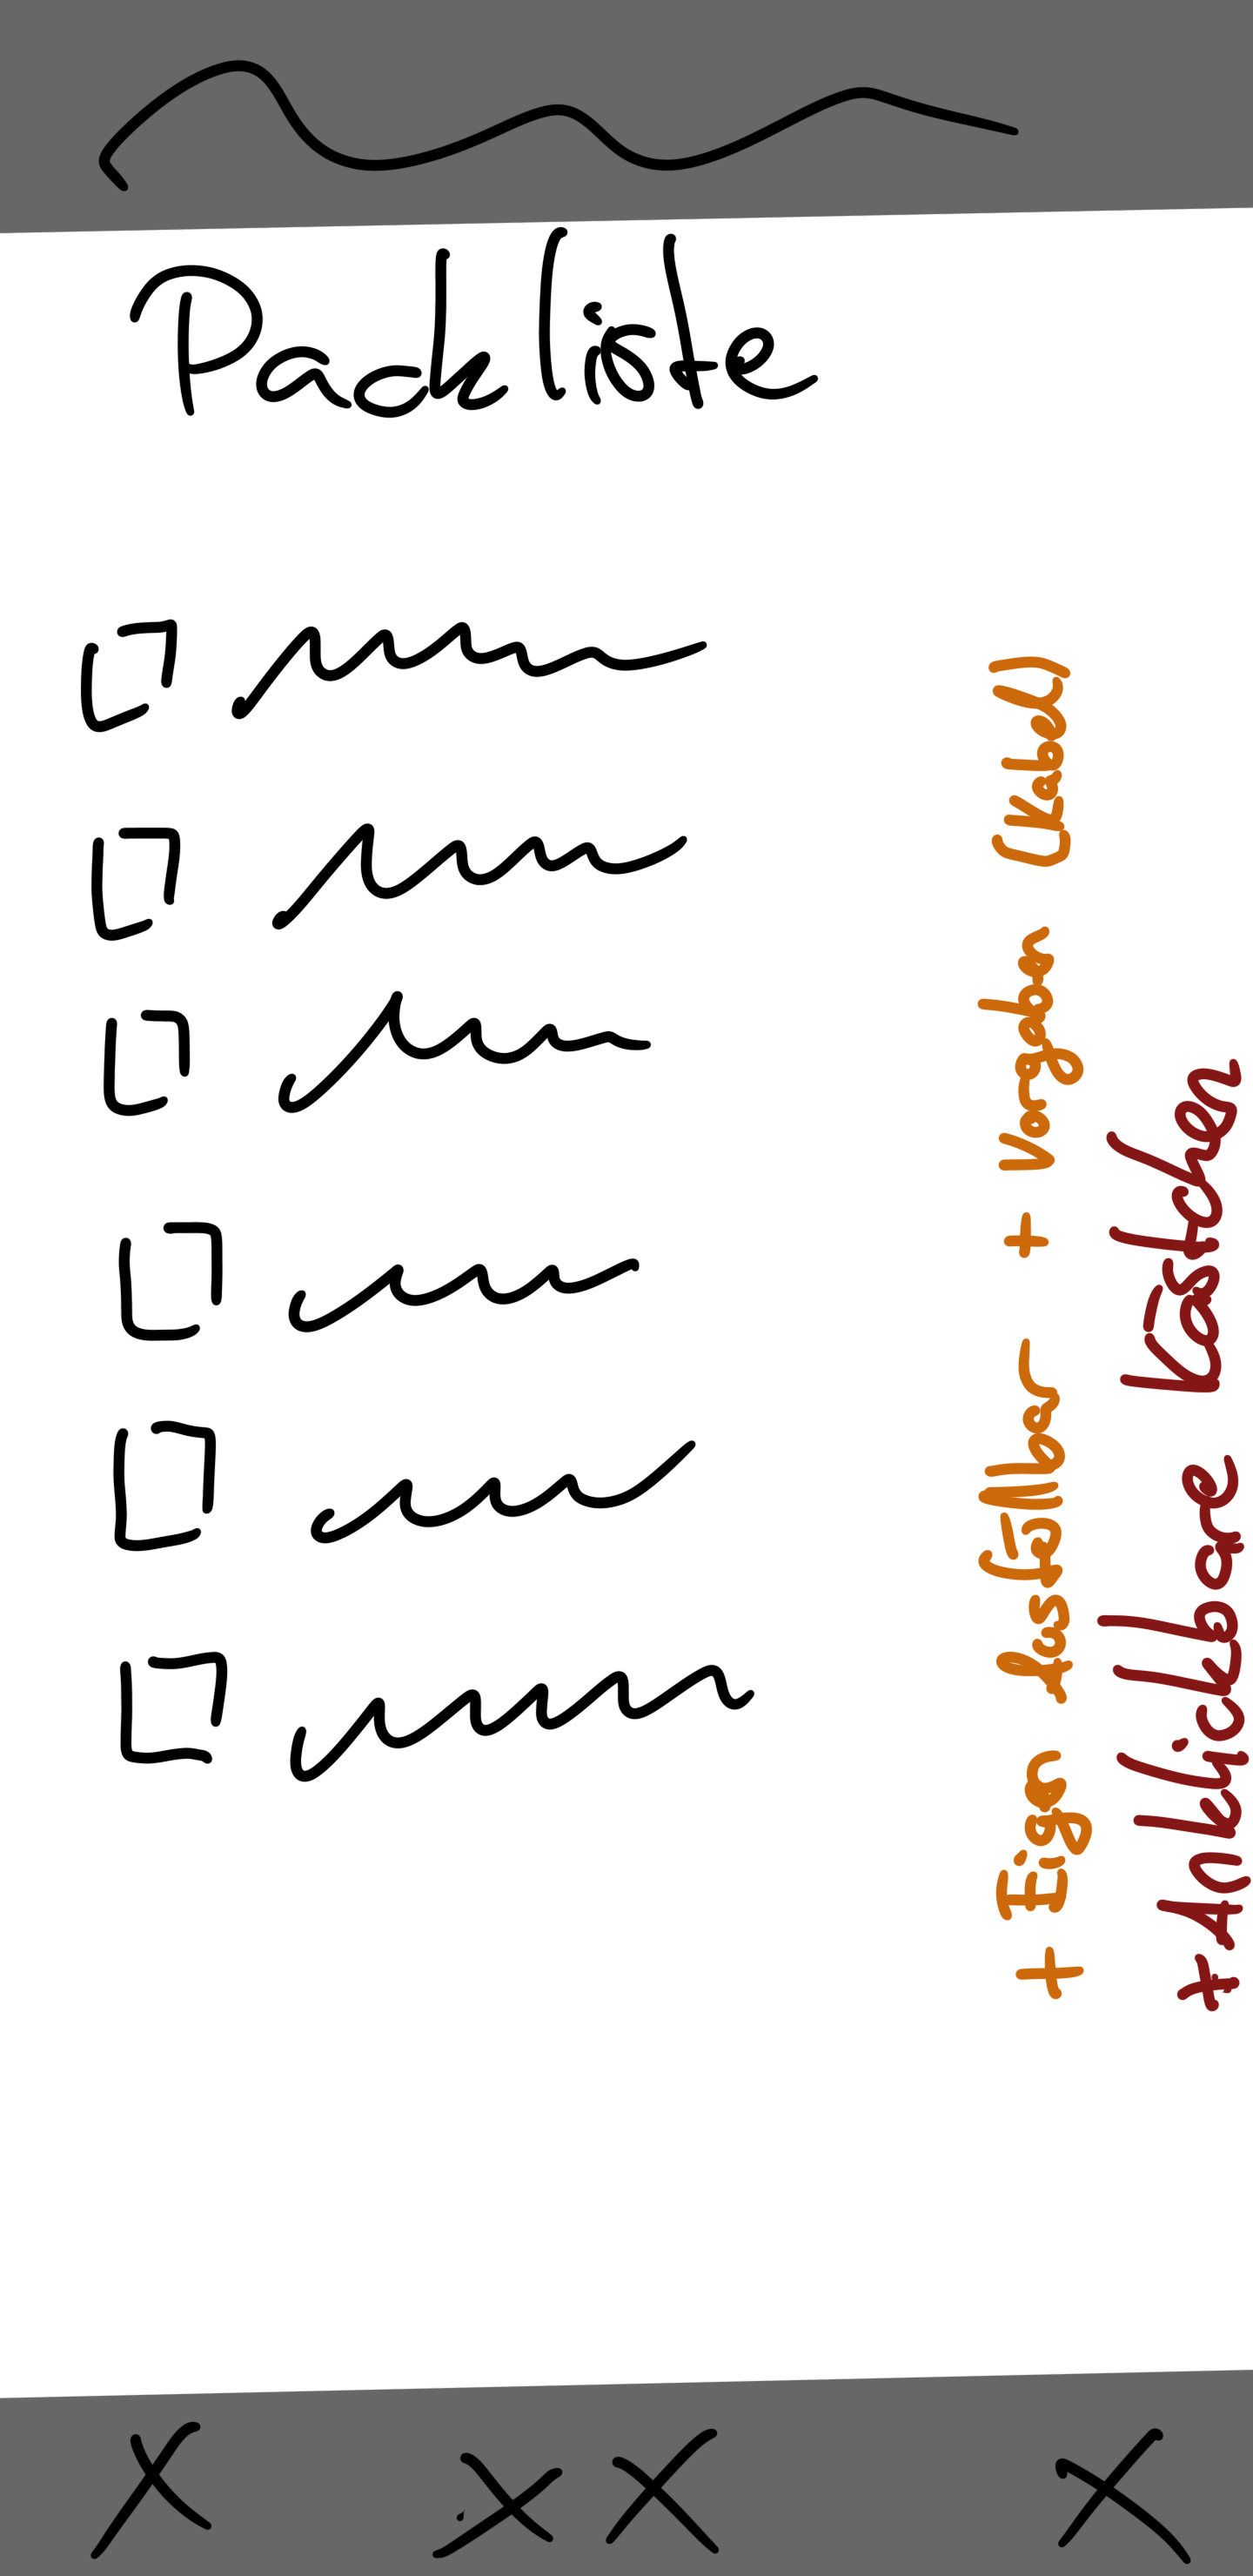 Packliste
+ Eigen ausfüllbar + Vorgaben (Kabel)
+ Anklickbare Kästchen